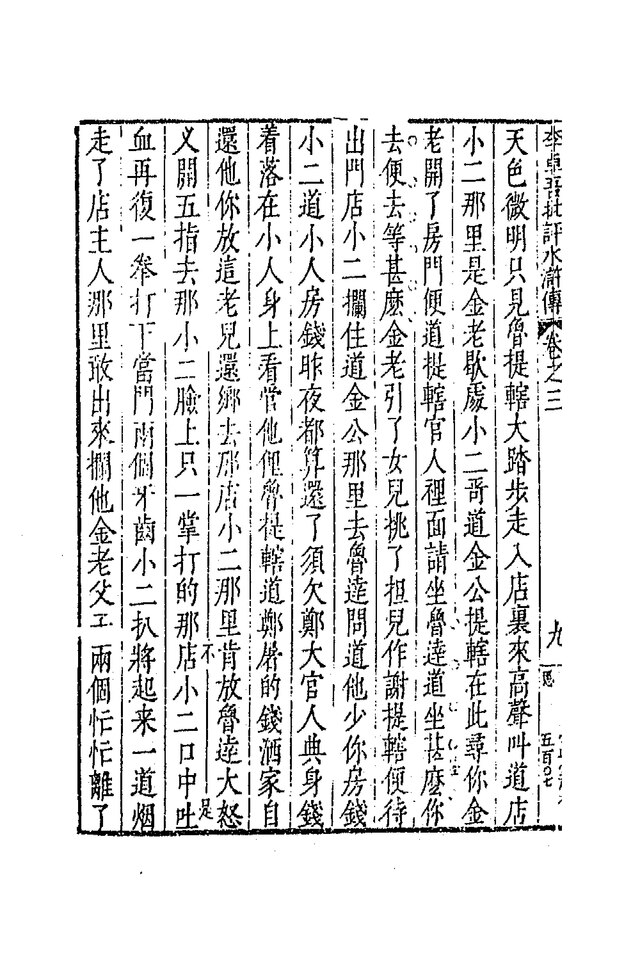 李卓吾批評水滸傳 卷之三
九
五百〇七
天色微明只見魯提轄大踏步走入店裏來高聲叫道店
小二那里是金老歇處小二哥道金公提轄在此尋你金
老開了房門便道提轄官人裡面請坐魯達道坐甚麼你
去便去等甚麽金老引了女兒挑了担兒作謝提轄便待
出門店小二攔住道金公那里去魯達問道他少你房錢
小二道小人房錢昨夜都算還了須欠鄭大官人典身錢
着落在小人身上看管他哩魯提轄道鄭屠的錢洒家自
還他你放這老兒還鄉去那店小二那里肯放魯達大怒
叉開五指去那小二臉上只一掌打的那店小二口中吐
不是
血再復一拳打下當門兩個牙齒小二扒將起来一道烟
走了店主人那里敢出來攔他金老父子兩個忙忙離了